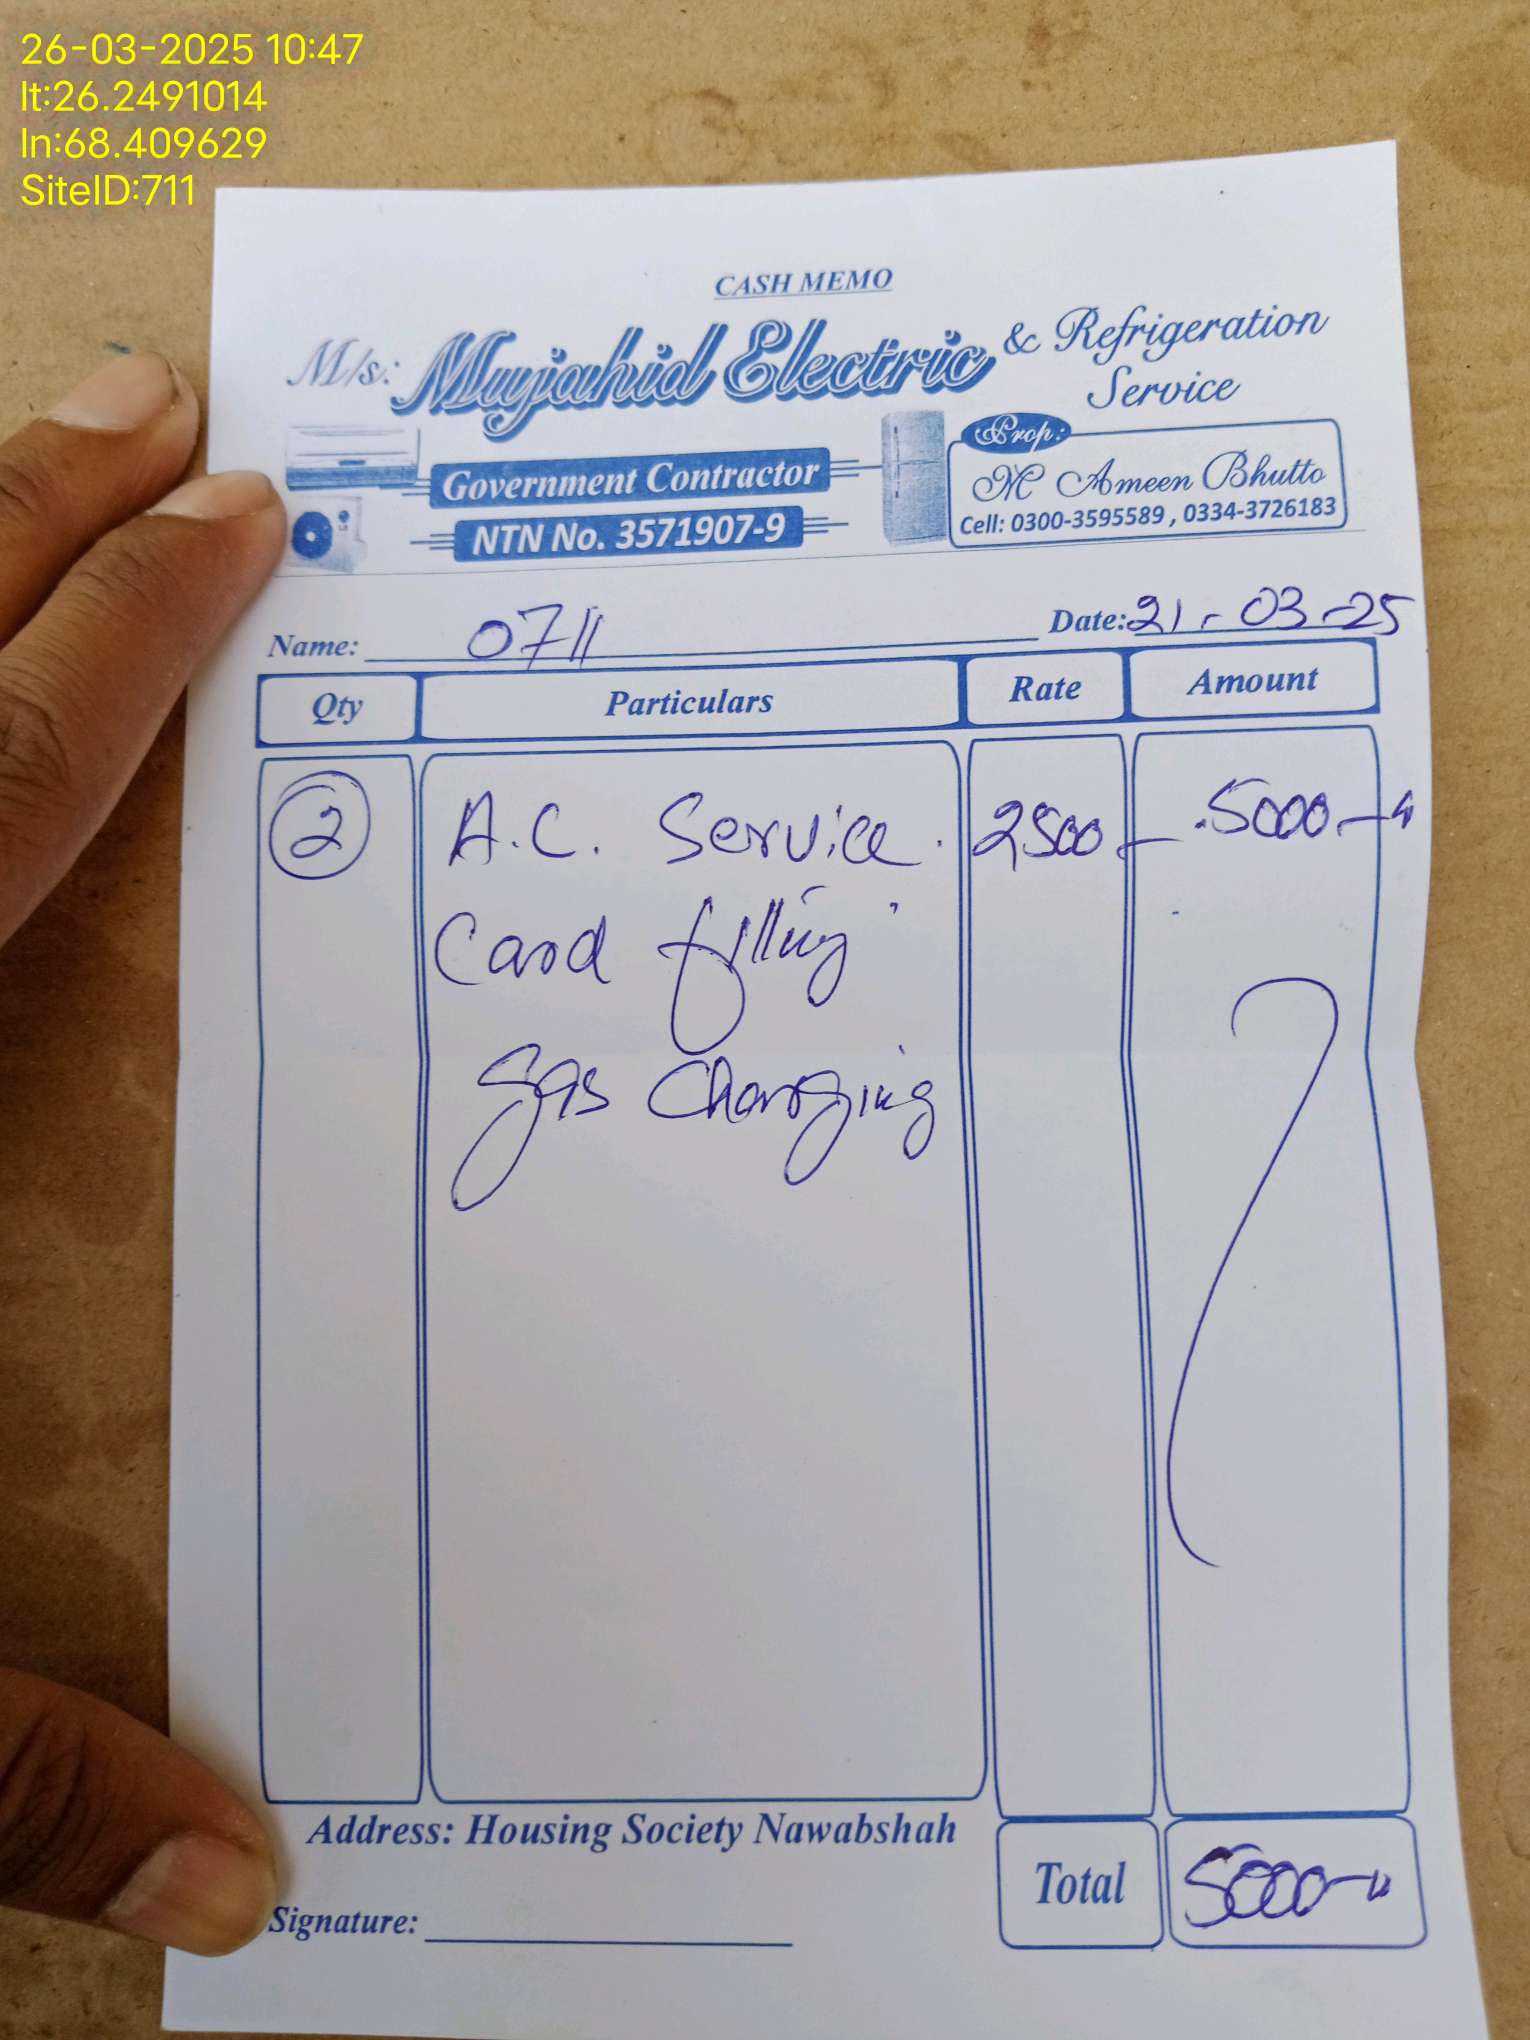 26-03-2025 10:47
lt:26.2491014
ln:68.409629
SiteID:711
CASH MEMO
M/s: Mujahid Electric & Refrigeration Service
Government Contractor
NTN No. 3571907-9
Prop:
M Ameen Bhutto
Cell: 0300-3595589 , 0334-3726183
Name: 0711 Date: 21-03-25
Qty Particulars Rate Amount
2 A.C. Service. 2500 - 5000-"
Card filling
Gas Charging
Address: Housing Society Nawabshah
Total 5000-"
Signature: